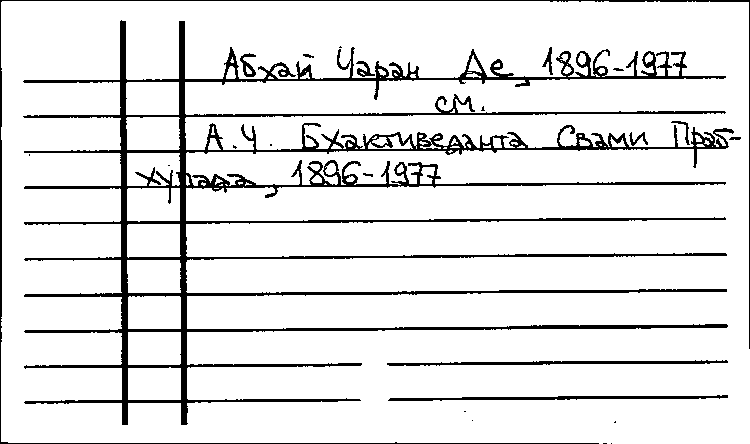 Абхай Чаран Де, 1896-1977
см.
А.Ч. Бхактиведанта Свами Праб-
хупада, 1896-1977